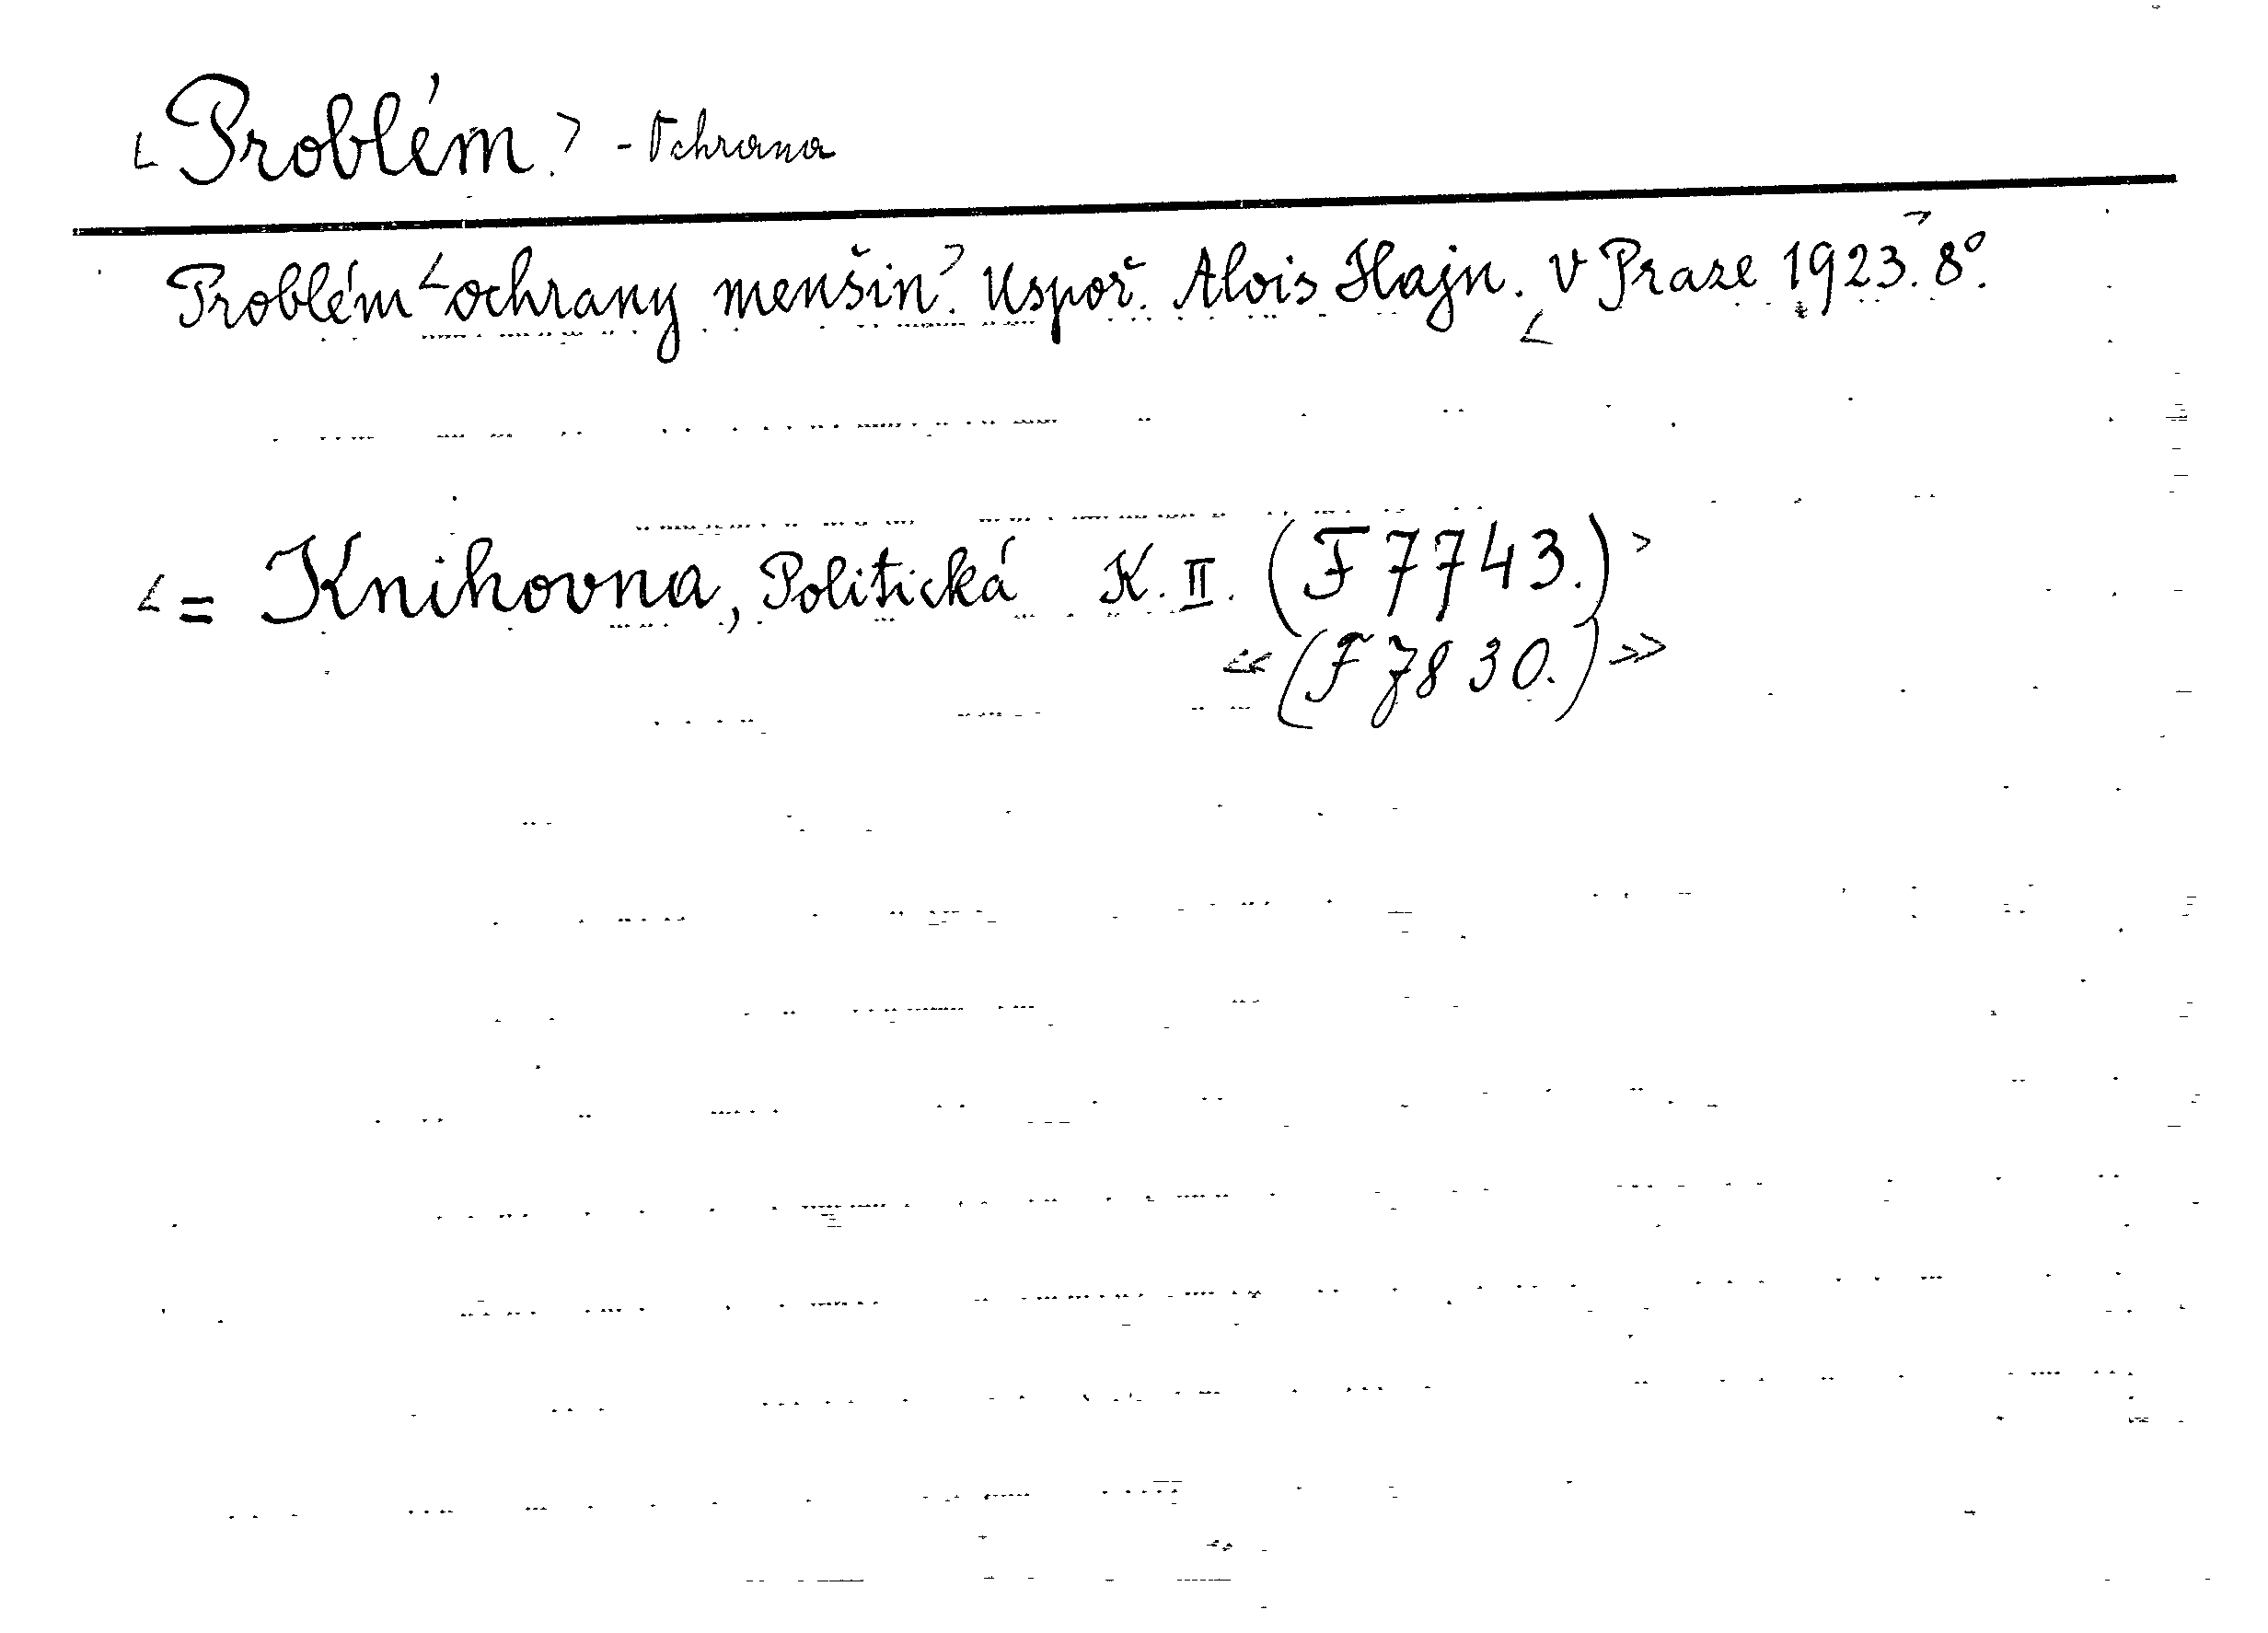 <Problém.> - Ochrana
Problém <ochrany menšin>. Uspoř. Alois Hajn. <V Praze 1923>. 8°.
<= Knihovna, Politická K. II. (F 7743.)>
<<(F 7830.)>>